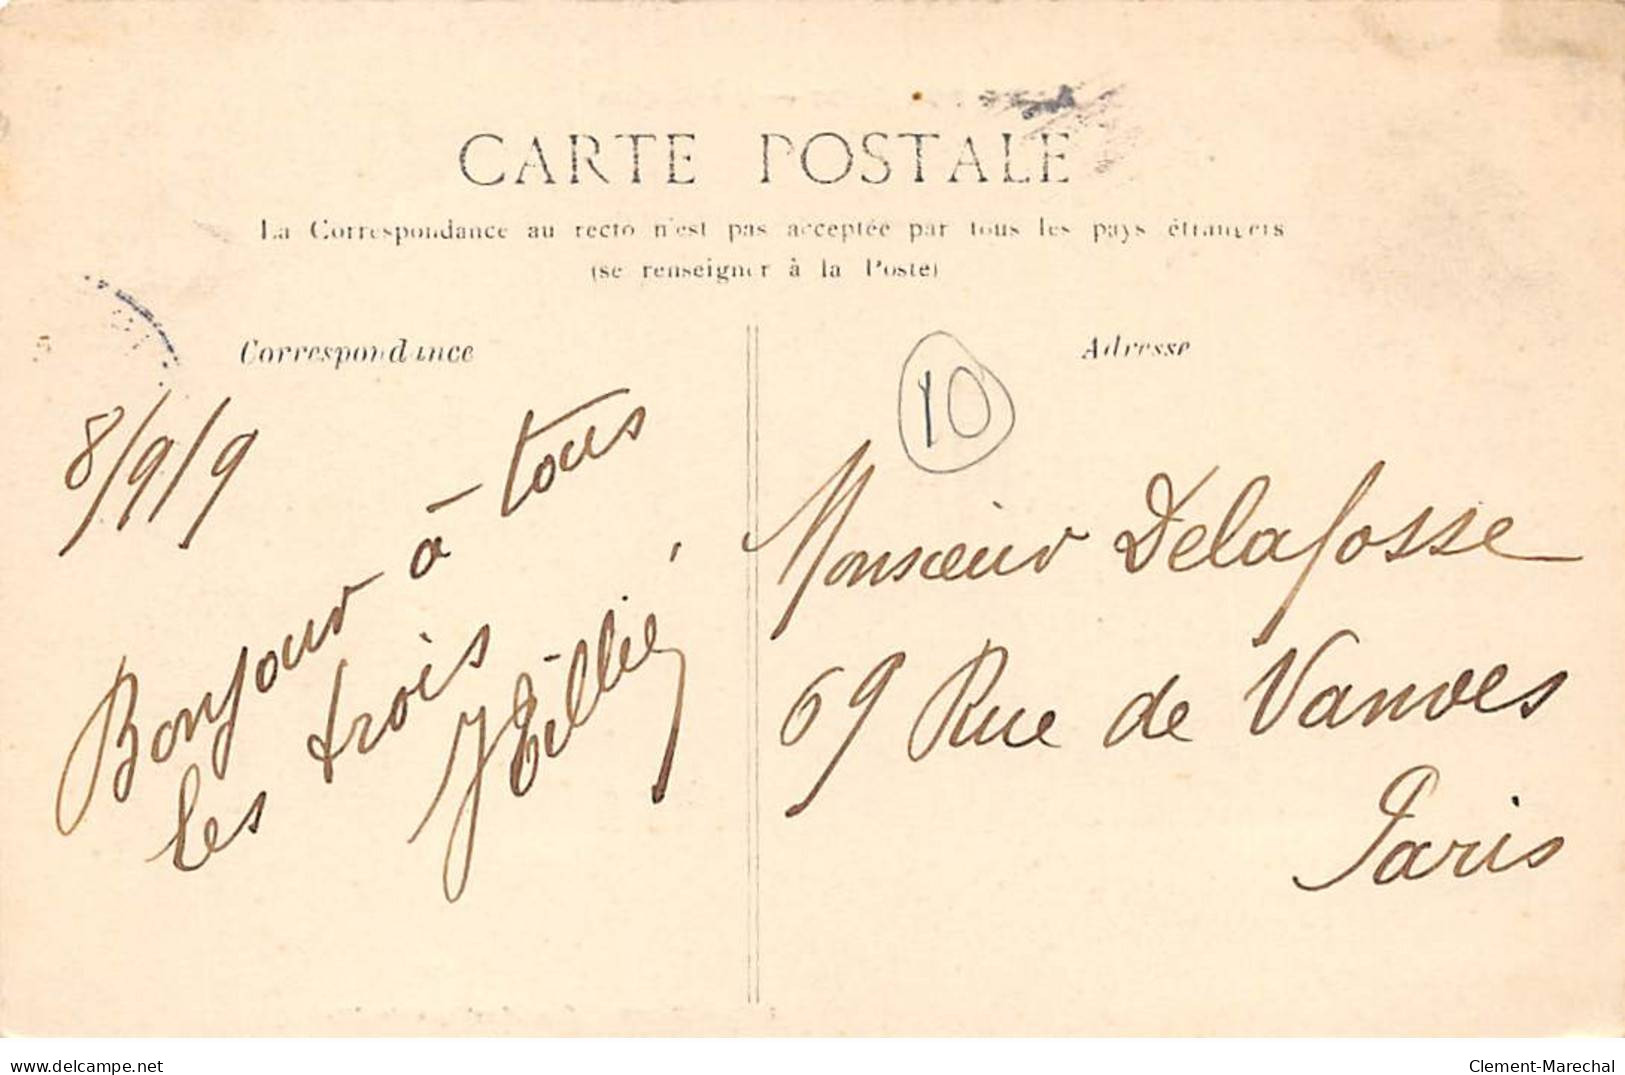 CARTE POSTALE
La Correspondance au recto n'est pas acceptée par tous les pays étrangers
(se renseigner à la Poste)
Correspondance
8/9/9
Bonjour à tous
les trois
Adresse
10
Monsieur Delafosse
69 Rue de Vanves
Paris
www.delcampe.net
Clement-Marechal